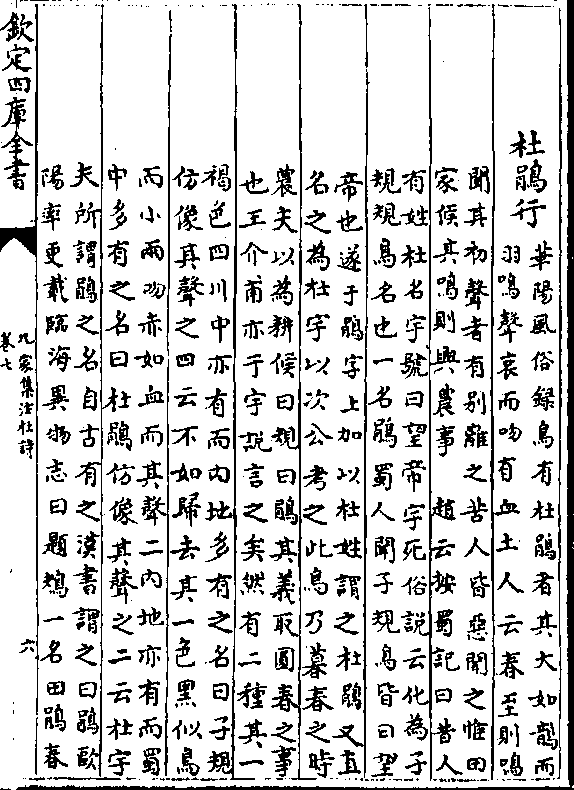 杜鵑行
華陽風俗録鳥有杜鵑者其大如鵲而
羽鳴聲哀而吻有血土人云春至則鳴
聞其初聲者有别離之苦人皆惡聞之惟田
家候其鳴則興農事　趙云按蜀記曰昔人
有姓杜名宇號曰望帝宇死俗説云化為子
規規鳥名也一名鵑蜀人聞子規鳥皆曰望
帝也遂于鵑字上加以杜姓謂之杜鵑又直
名之為杜宇以次公考之此鳥乃暮春之時
農夫以為耕候曰規曰鵑其義取圓春之事
也王介甫亦于字説言之矣然有二種其一
褐色四川中亦有而内地多有之名曰子規
仿像其聲之四云不如歸去其一色黑似鳥
而小兩吻赤如血而其聲二内地亦有而蜀
中多有之名曰杜鵑仿像其聲之二云杜宇
夫所謂鵑之名自古有之漢書謂之曰鵑歐
陽率更載臨海異物志曰題鴂一名田鵑春
欽定四庫全書
九家集注杜詩
卷七
六